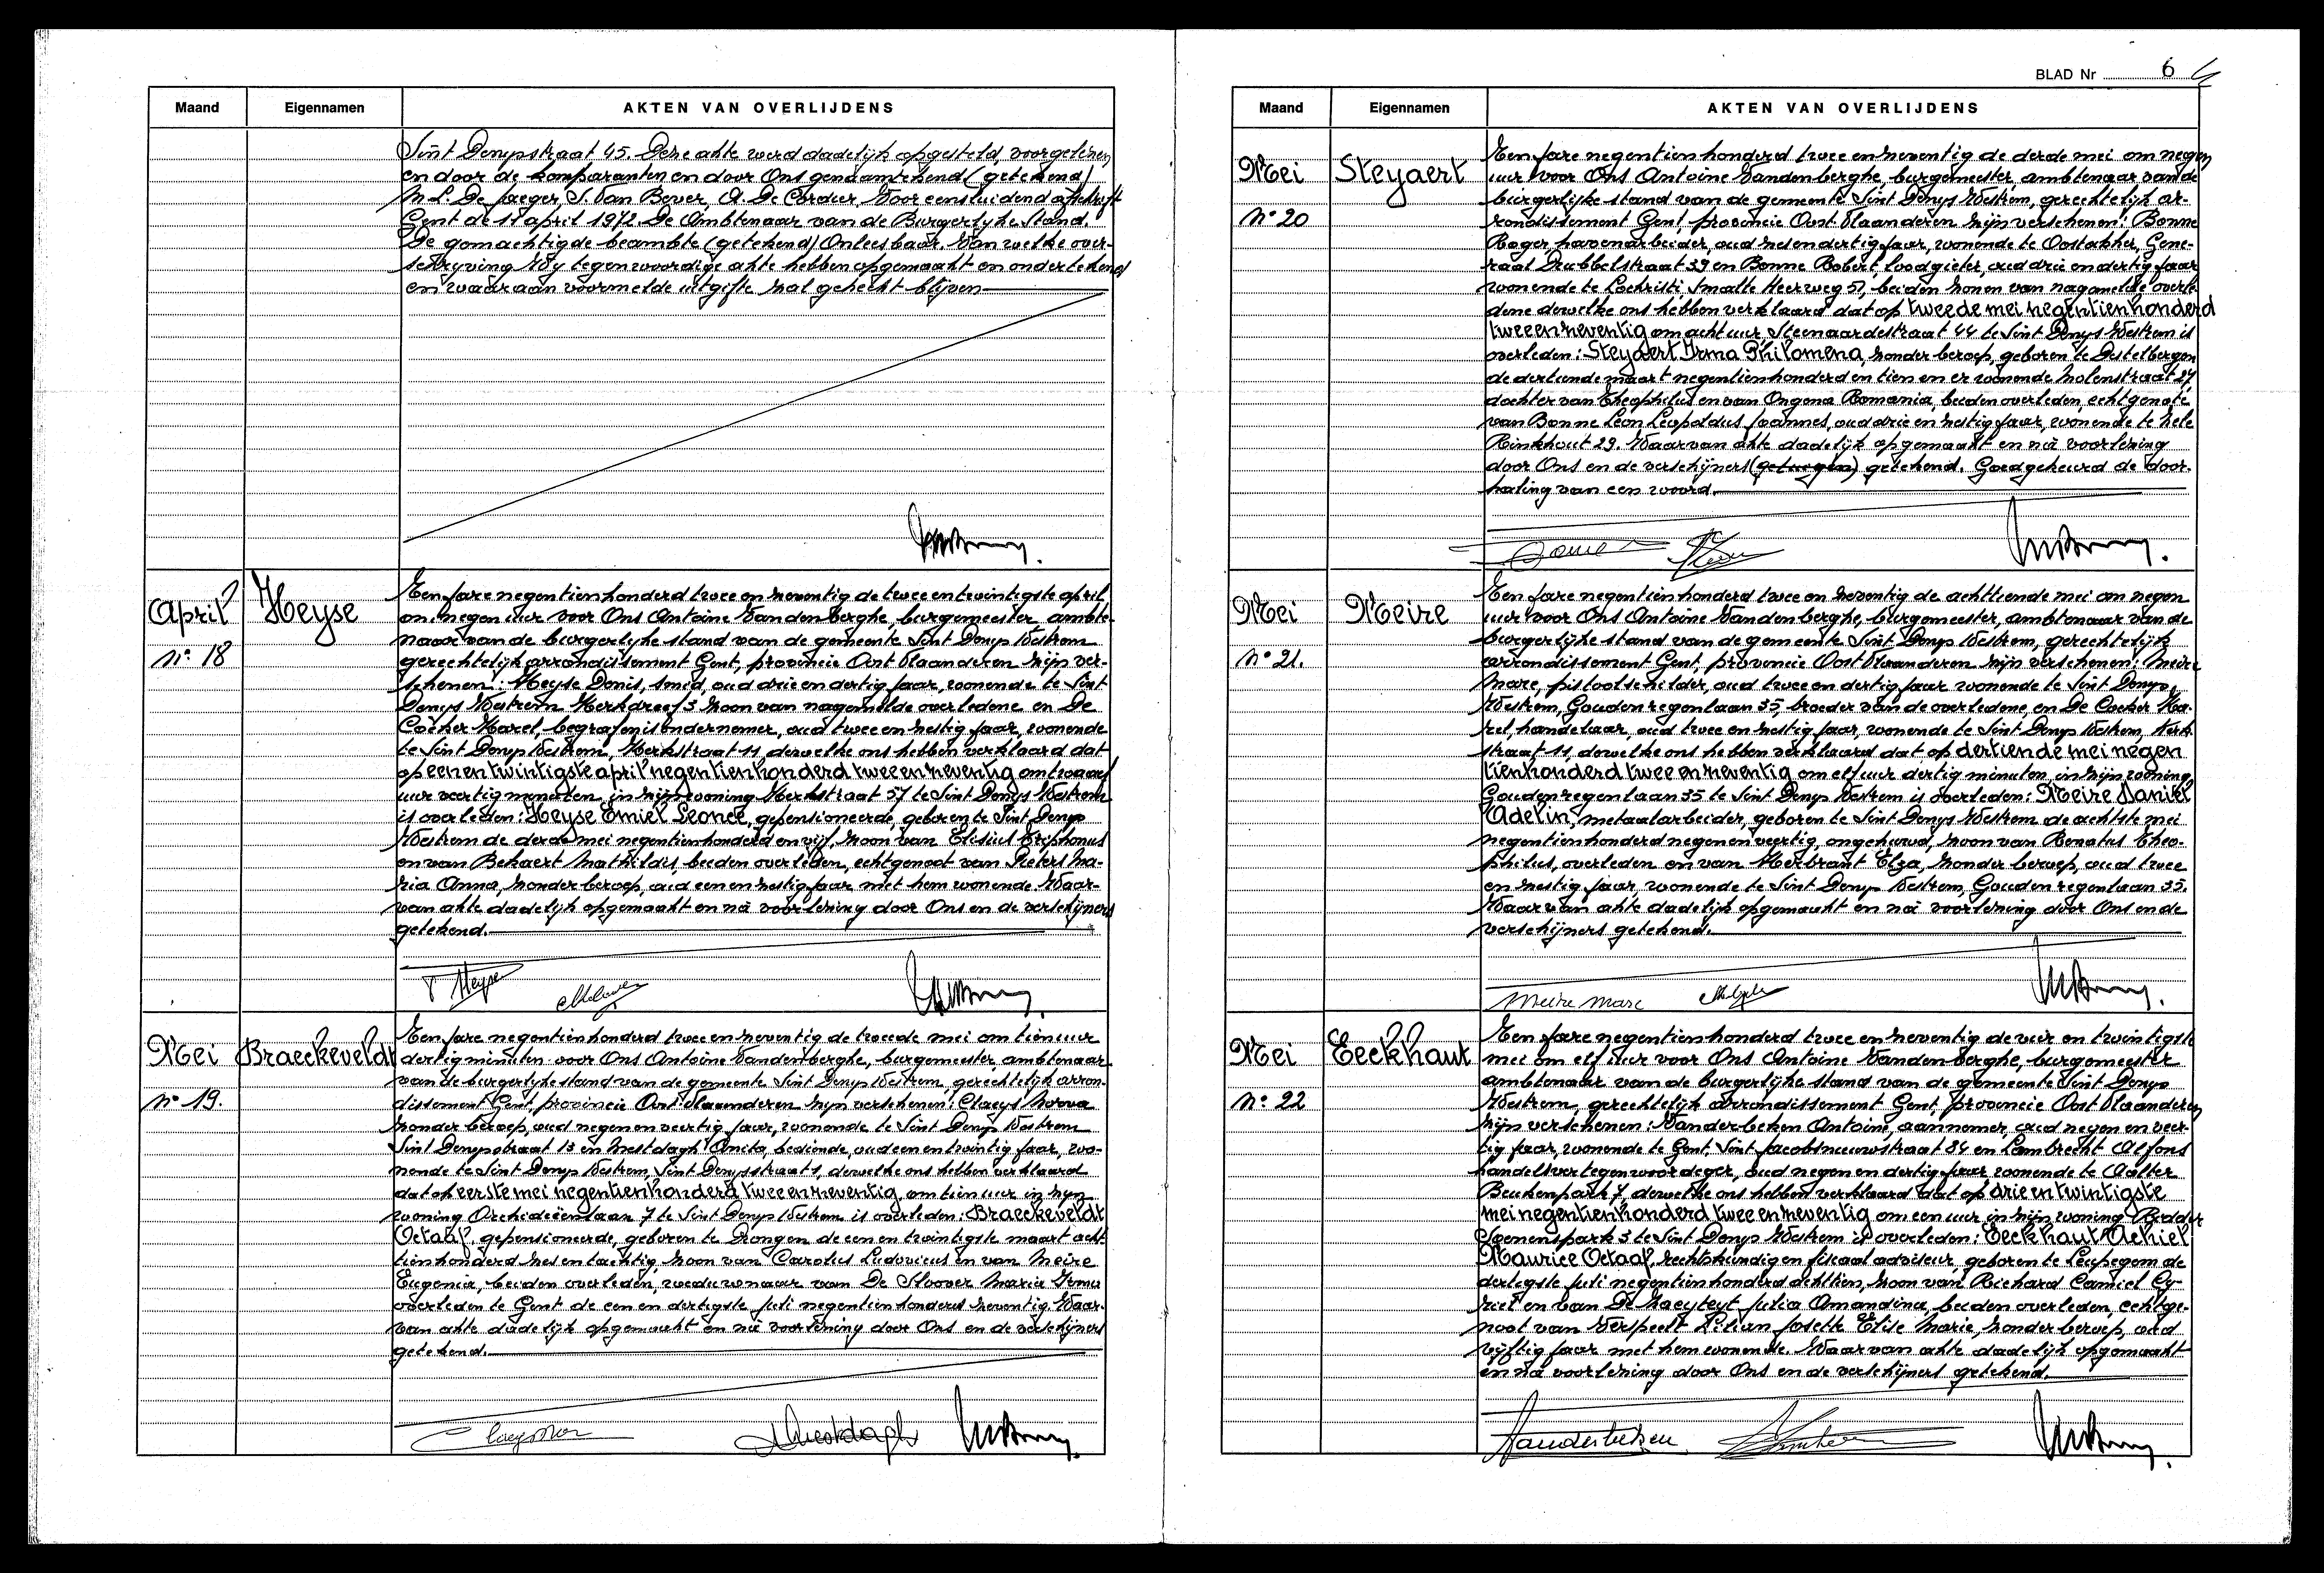 Maand Eigennamen AKTEN VAN OVERLIJDENS
Sint Denysstraat 45. Deze akte werd dadelijk opgesteld, voorgelezen
en door de komparanten en door Ons genaamtekend (getekend)
M.L. De Jaeger, S. Van Bever, A. De Cordier, Voor eensluidend afschrift
Gent de 17 april 1972 De Ambtenaar van de Burgerlijke Stand.
De gemachtigde beambte (getekend) Onleesbaar. Van welke over-
schrijving Wij tegenwoordige akte hebben opgemaakt en ondertekend
en waaraan voormelde uitgifte zal gehecht blijven
April
Heyse
N° 18
Een jare negentienhonderd twee en zeventig de twee en twintigste april
om negen uur voor Ons Antoine Vandenberghe, burgemeester, ambte-
naar van de burgerlijke stand van de gemeente Sint Denys Westrem
gerechtelijk arrondissement Gent, provincie Oost Vlaanderen zijn ver-
schenen: Heyse Denis, smid, oud drie en dertig jaar, wonende te Sint
Denys Westrem Kerkdreef 3 zoon van nagemelde overledene en De
Cocker Karel, begrafenisondernemer, oud twee en zestig jaar, wonende
te Sint Denys Westrem, Kerkstraat 11, dewelke ons hebben verklaard dat
op een en twintigste april negentienhonderd twee en zeventig om twaalf
uur veertig minuten in zijn woning Kerkstraat 57 te Sint Denys Westrem
is overleden: Heyse Emiel Leonce, gepensioneerde, geboren te Sint Denys
Westrem de derde mei negentienhonderd en vijf, zoon van Elisius
en van Bekaert Mathildis, beiden overleden, echtgenoot van Pieters Ma-
ria Anna, zonder beroep, oud een en zestig jaar met hem wonende. Waar-
van akte dadelijk opgemaakt en nà voorlezing door Ons en de verschijners
getekend.
Heyse
Mei
Braeckeveldt
N° 19.
Een jare negentienhonderd twee en zeventig de tweede mei om tien uur
dertig minuten voor Ons Antoine Vandenberghe, burgemeester ambtenaar
van de burgerlijke stand van de gemeente Sint Denys Westrem, gerechtelijk arron-
dissement Gent, provincie Oost Vlaanderen zijn verschenen: Claeys Norva
zonder beroep, oud negen en veertig jaar, wonende te Sint Denys Westrem
Sint Denysstraat 13 en Mestdagh Anita, bediende, oud een en twintig jaar, wo-
nende te Sint Denys Westrem, Sint Denysstraat 1, dewelke ons hebben verklaard
dat op eerste mei negentienhonderd twee en zeventig om tien uur in zijn
woning Orchideeënlaan 7 te Sint Denys Westrem is overleden: Braeckeveldt
Octaaf, gepensioneerde, geboren te Drongen de een en twintigste maart acht-
tienhonderd zes en tachtig, zoon van Carolus Ludovicus en van Meire
Eugenia, beiden overleden, weduwnaar van De Sloover Maria Irma
overleden te Gent de een en dertigste juli negentienhonderd zeventig. Waar-
van akte dadelijk opgemaakt en nà voorlezing door Ons en de verschijners
getekend.
BLAD Nr 6
Maand Eigennamen AKTEN VAN OVERLIJDENS
Mei
Steyaert
N° 20
Een jare negentienhonderd twee en zeventig de derde mei om negen
uur voor Ons Antoine Vandenberghe, burgemeester, ambtenaar van de
burgerlijke stand van de gemeente Sint Denys Westrem, gerechtelijk ar-
rondissement Gent, provincie Oost Vlaanderen zijn verschenen: Bonne
Roger, havenarbeider, oud zes en dertig jaar, wonende te Oostakker, Gene-
raal Drubbelstraat 39 en Bonne Robert loodgieter, oud drie en dertig jaar
wonende te Lochristi Smalle Heerweg 51, beiden zonen van nagemelde overle-
dene dewelke ons hebben verklaard dat op tweede mei negentienhonderd
twee en zeventig om acht uur, Steenaardestraat 44 te Sint Denys Westrem is
overleden: Steyaert Irma Philomena, zonder beroep, geboren te Destelbergen
de dertiende maart negentienhonderd en tien en er wonende Molenstraat 27
dochter van Theophilus en van Ongena Romania, beiden overleden, echtgenote
van Bonne Leon Leopoldus Joannes, oud drie en zestig jaar, wonende te Zele
Rinkhout 29. Waarvan akte dadelijk opgemaakt en nà voorlezing
door Ons en de verschijners (getuigen) getekend. Goedgekeurd de door-
haling van een woord.
Mei
Meire
N° 21.
Een jare negentienhonderd twee en zeventig de achttiende mei om negen
uur voor Ons Antoine Vandenberghe, burgemeester, ambtenaar van de
burgerlijke stand van de gemeente Sint Denys Westrem, gerechtelijk
arrondissement Gent, provincie Oost Vlaanderen zijn verschenen: Meire
Marc, pistoolschilder, oud twee en dertig jaar wonende te Sint Denys
Westrem, Goudenregenlaan 35, broeder van de overledene, en De Cocker Ka-
rel, handelaar, oud twee en zestig jaar, wonende te Sint Denys Westrem, Kerk-
straat 11, dewelke ons hebben verklaard dat op dertiende mei negen
tienhonderd twee en zeventig om elf uur dertig minuten, in zijn woning
Goudenregenlaan 35 te Sint Denys Westrem is overleden: Meire Daniël
Adelin, metaalarbeider, geboren te Sint Denys Westrem de achtste mei
negentienhonderd negen en veertig, ongehuwd, zoon van Renatus Theo-
philus, overleden en van Herbrant Elza, zonder beroep, oud twee
en zestig jaar, wonende te Sint Denys Westrem, Goudenregenlaan 35.
Waarvan akte dadelijk opgemaakt en nà voorlezing door Ons en de
verschijners getekend.
Meire Marc
Mei
Eeckhaut
N° 22
Een jare negentienhonderd twee en zeventig de vier en twintigste
mei om elf uur voor Ons Antoine Vandenberghe, burgemeester
ambtenaar van de burgerlijke stand van de gemeente Sint Denys
Westrem, gerechtelijk arrondissement Gent, provincie Oost Vlaanderen
zijn verschenen: Vanderbeken Antoine, aannemer, oud negen en veer-
tig jaar, wonende te Gent, Sint Jacobsnieuwstraat 84 en Lambrecht Alfons
handelsvertegenwoordiger, oud negen en dertig jaar wonende te Aalter
Beukenpark 7, dewelke ons hebben verklaard dat op drie en twintigste
mei negentienhonderd twee en zeventig om een uur in zijn woning Ridder
park 3 te Sint Denys Westrem is overleden: Eeckhaut Achiel
Maurice Octaaf, rechtskundig en fiscaal adviseur, geboren te Leupegem de
dertigste juli negentienhonderd achttien, zoon van Richard Camiel Cy-
riel en van De Zaeyteyt Julia Amandina, beiden overleden, echtge-
noot van Verspeelt Lilian Josette Elise Marie, zonder beroep, oud
vijftig jaar met hem wonende. Waarvan akte dadelijk opgemaakt
en nà voorlezing door Ons en de verschijners getekend.
Vanderbeken